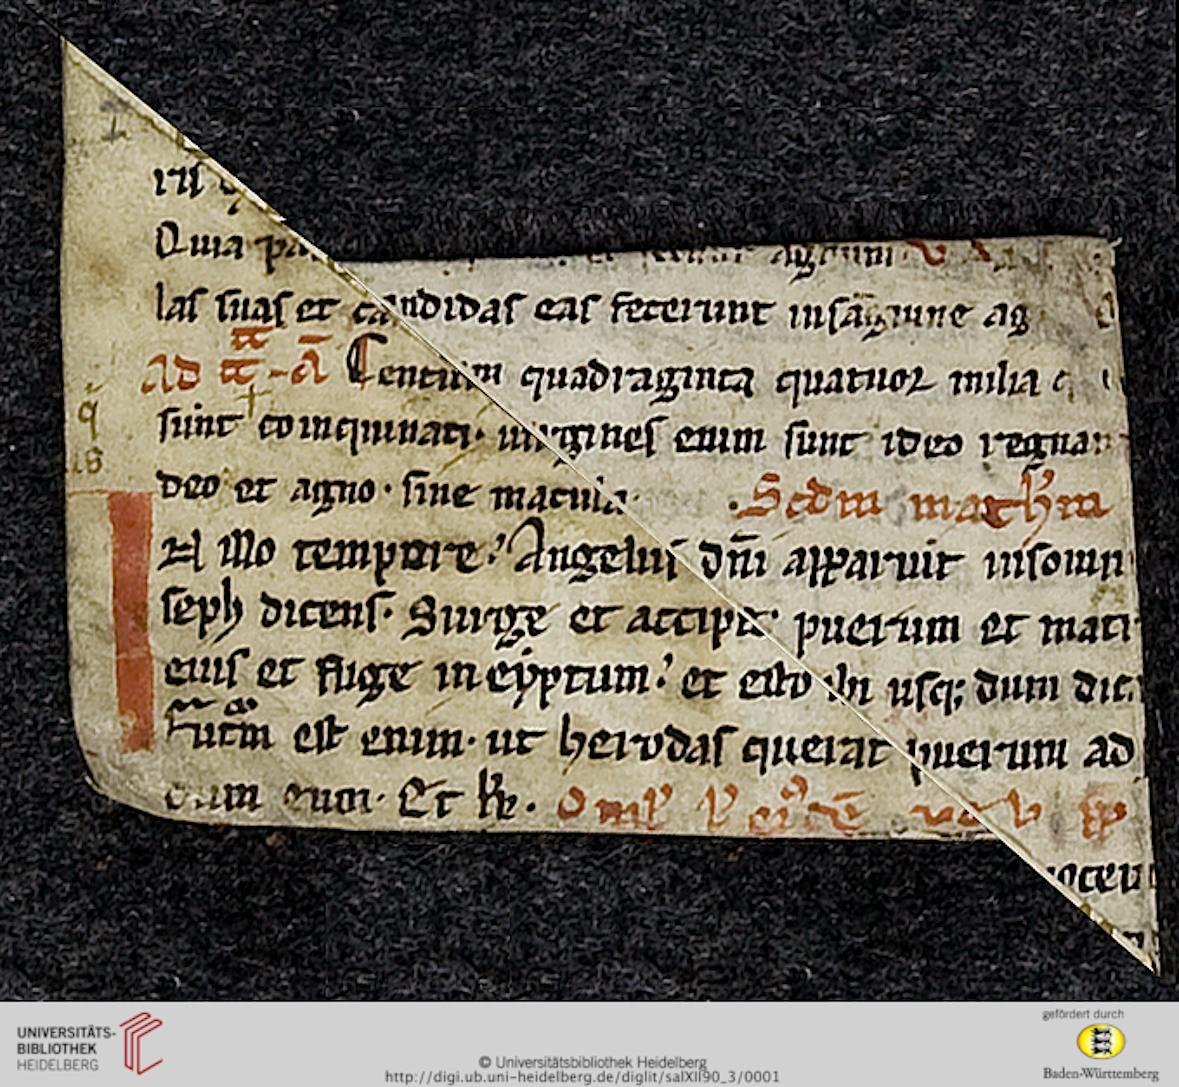 I
Quia
las suas et candidas eas fecerunt insāguine ag
Ad Centum quadraginta quatuor milia q
sunt coinquinati· uirgines enim sunt ideo regnan
q̄
deo et agno· sine macula· ·Scdm math̄m
N illo tempore· Angelus dn̄i apparuit insomn
seph dicens· Surge et accipe puerum et matr
eius et fuge in eyptum· et esto ibi usq; dum dic
est enim· ut herodas querat puerum ad
eum· Et
UNIVERSITÄTS-
BIBLIOTHEK
HEIDELBERG
© Universitätsbibliothek Heidelberg
http://digi.ub.uni-heidelberg.de/diglit/salXII90_3/0001
gefördert durch
Baden-Württemberg